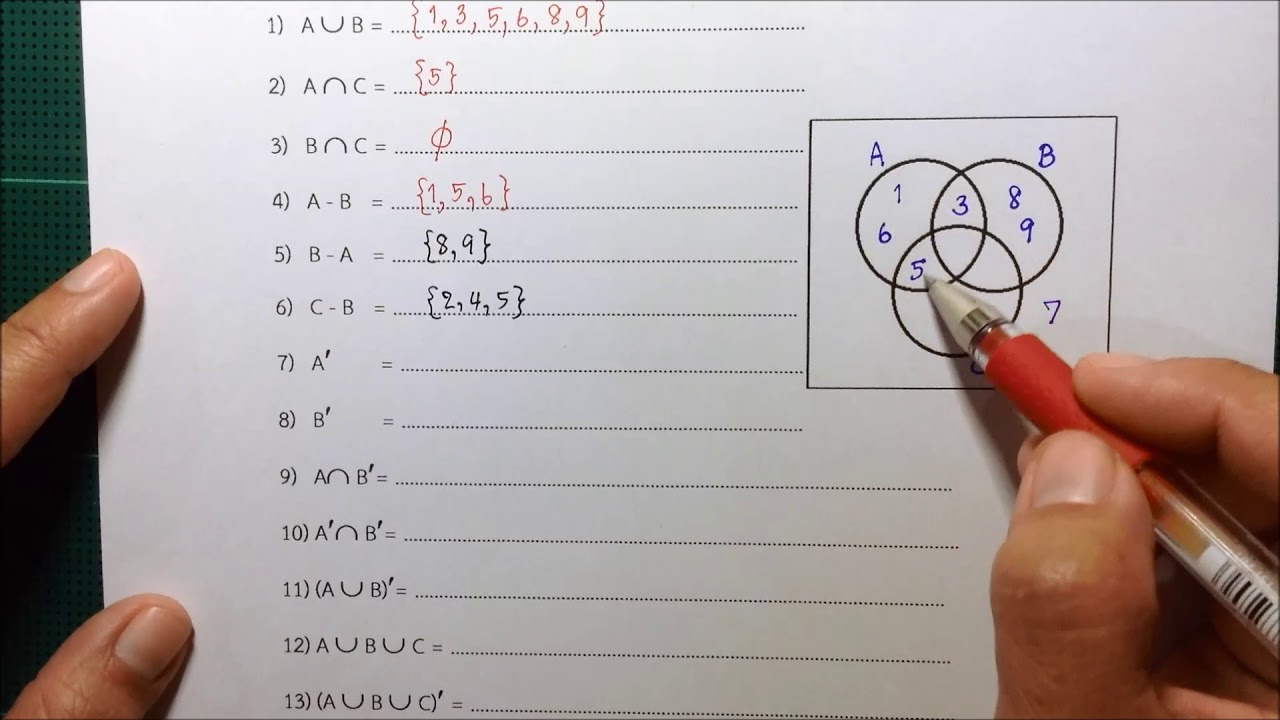 1) A ∪ B = {1, 3, 5, 6, 8, 9}
2) A ∩ C = {5}
3) B ∩ C = ϕ
4) A - B = {1, 5, 6}
5) B - A = {8, 9}
6) C - B = {2, 4, 5}
7) A′ =
8) B′ =
9) A ∩ B′ =
10) A′ ∩ B′ =
11) (A ∪ B)′ =
12) A ∪ B ∪ C =
13) (A ∪ B ∪ C)′ =
A B
1 3 8
6 9
5
7